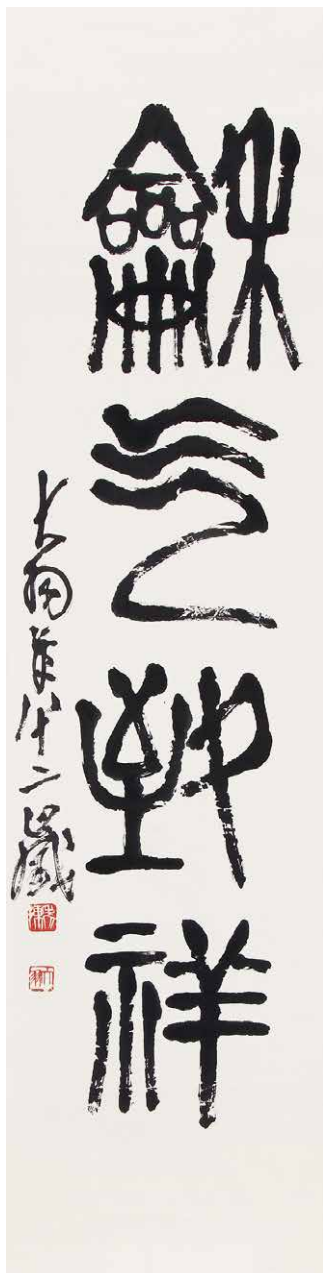 龢气致祥
大羽年八十二歲